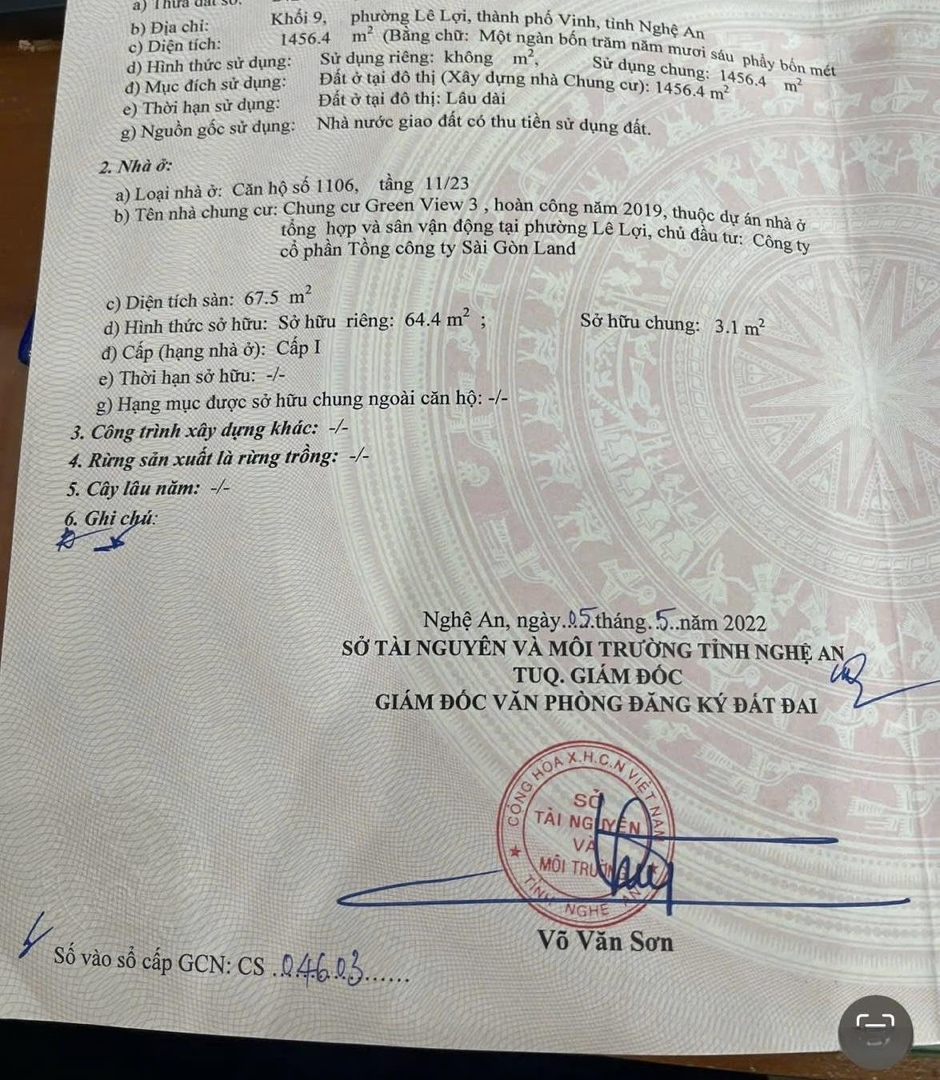 a) Thửa đất số:
b) Địa chỉ: Khối 9, phường Lê Lợi, thành phố Vinh, tỉnh Nghệ An
c) Diện tích: 1456.4 m² (Bằng chữ: Một ngàn bốn trăm năm mươi sáu phẩy bốn mét
d) Hình thức sử dụng: Sử dụng riêng: không m², Sử dụng chung: 1456.4 m²
đ) Mục đích sử dụng: Đất ở tại đô thị (Xây dựng nhà Chung cư): 1456.4 m²
e) Thời hạn sử dụng: Đất ở tại đô thị: Lâu dài
g) Nguồn gốc sử dụng: Nhà nước giao đất có thu tiền sử dụng đất.
2. Nhà ở:
a) Loại nhà ở: Căn hộ số 1106, tầng 11/23
b) Tên nhà chung cư: Chung cư Green View 3 , hoàn công năm 2019, thuộc dự án nhà ở
tổng hợp và sân vận động tại phường Lê Lợi, chủ đầu tư: Công ty
cổ phần Tổng công ty Sài Gòn Land
c) Diện tích sàn: 67.5 m²
d) Hình thức sở hữu: Sở hữu riêng: 64.4 m² ; Sở hữu chung: 3.1 m²
đ) Cấp (hạng nhà ở): Cấp I
e) Thời hạn sở hữu: -/-
g) Hạng mục được sở hữu chung ngoài căn hộ: -/-
3. Công trình xây dựng khác: -/-
4. Rừng sản xuất là rừng trồng: -/-
5. Cây lâu năm: -/-
6. Ghi chú:
Nghệ An, ngày..05.tháng..5..năm 2022
SỞ TÀI NGUYÊN VÀ MÔI TRƯỜNG TỈNH NGHỆ AN
TUQ. GIÁM ĐỐC
GIÁM ĐỐC VĂN PHÒNG ĐĂNG KÝ ĐẤT ĐAI
CỘNG HÒA X.H.C.N VIỆT NAM
SỞ
TÀI NGUYÊN
VÀ
MÔI TRƯỜNG
TỈNH NGHỆ AN
Võ Văn Sơn
Số vào sổ cấp GCN: CS .04603......